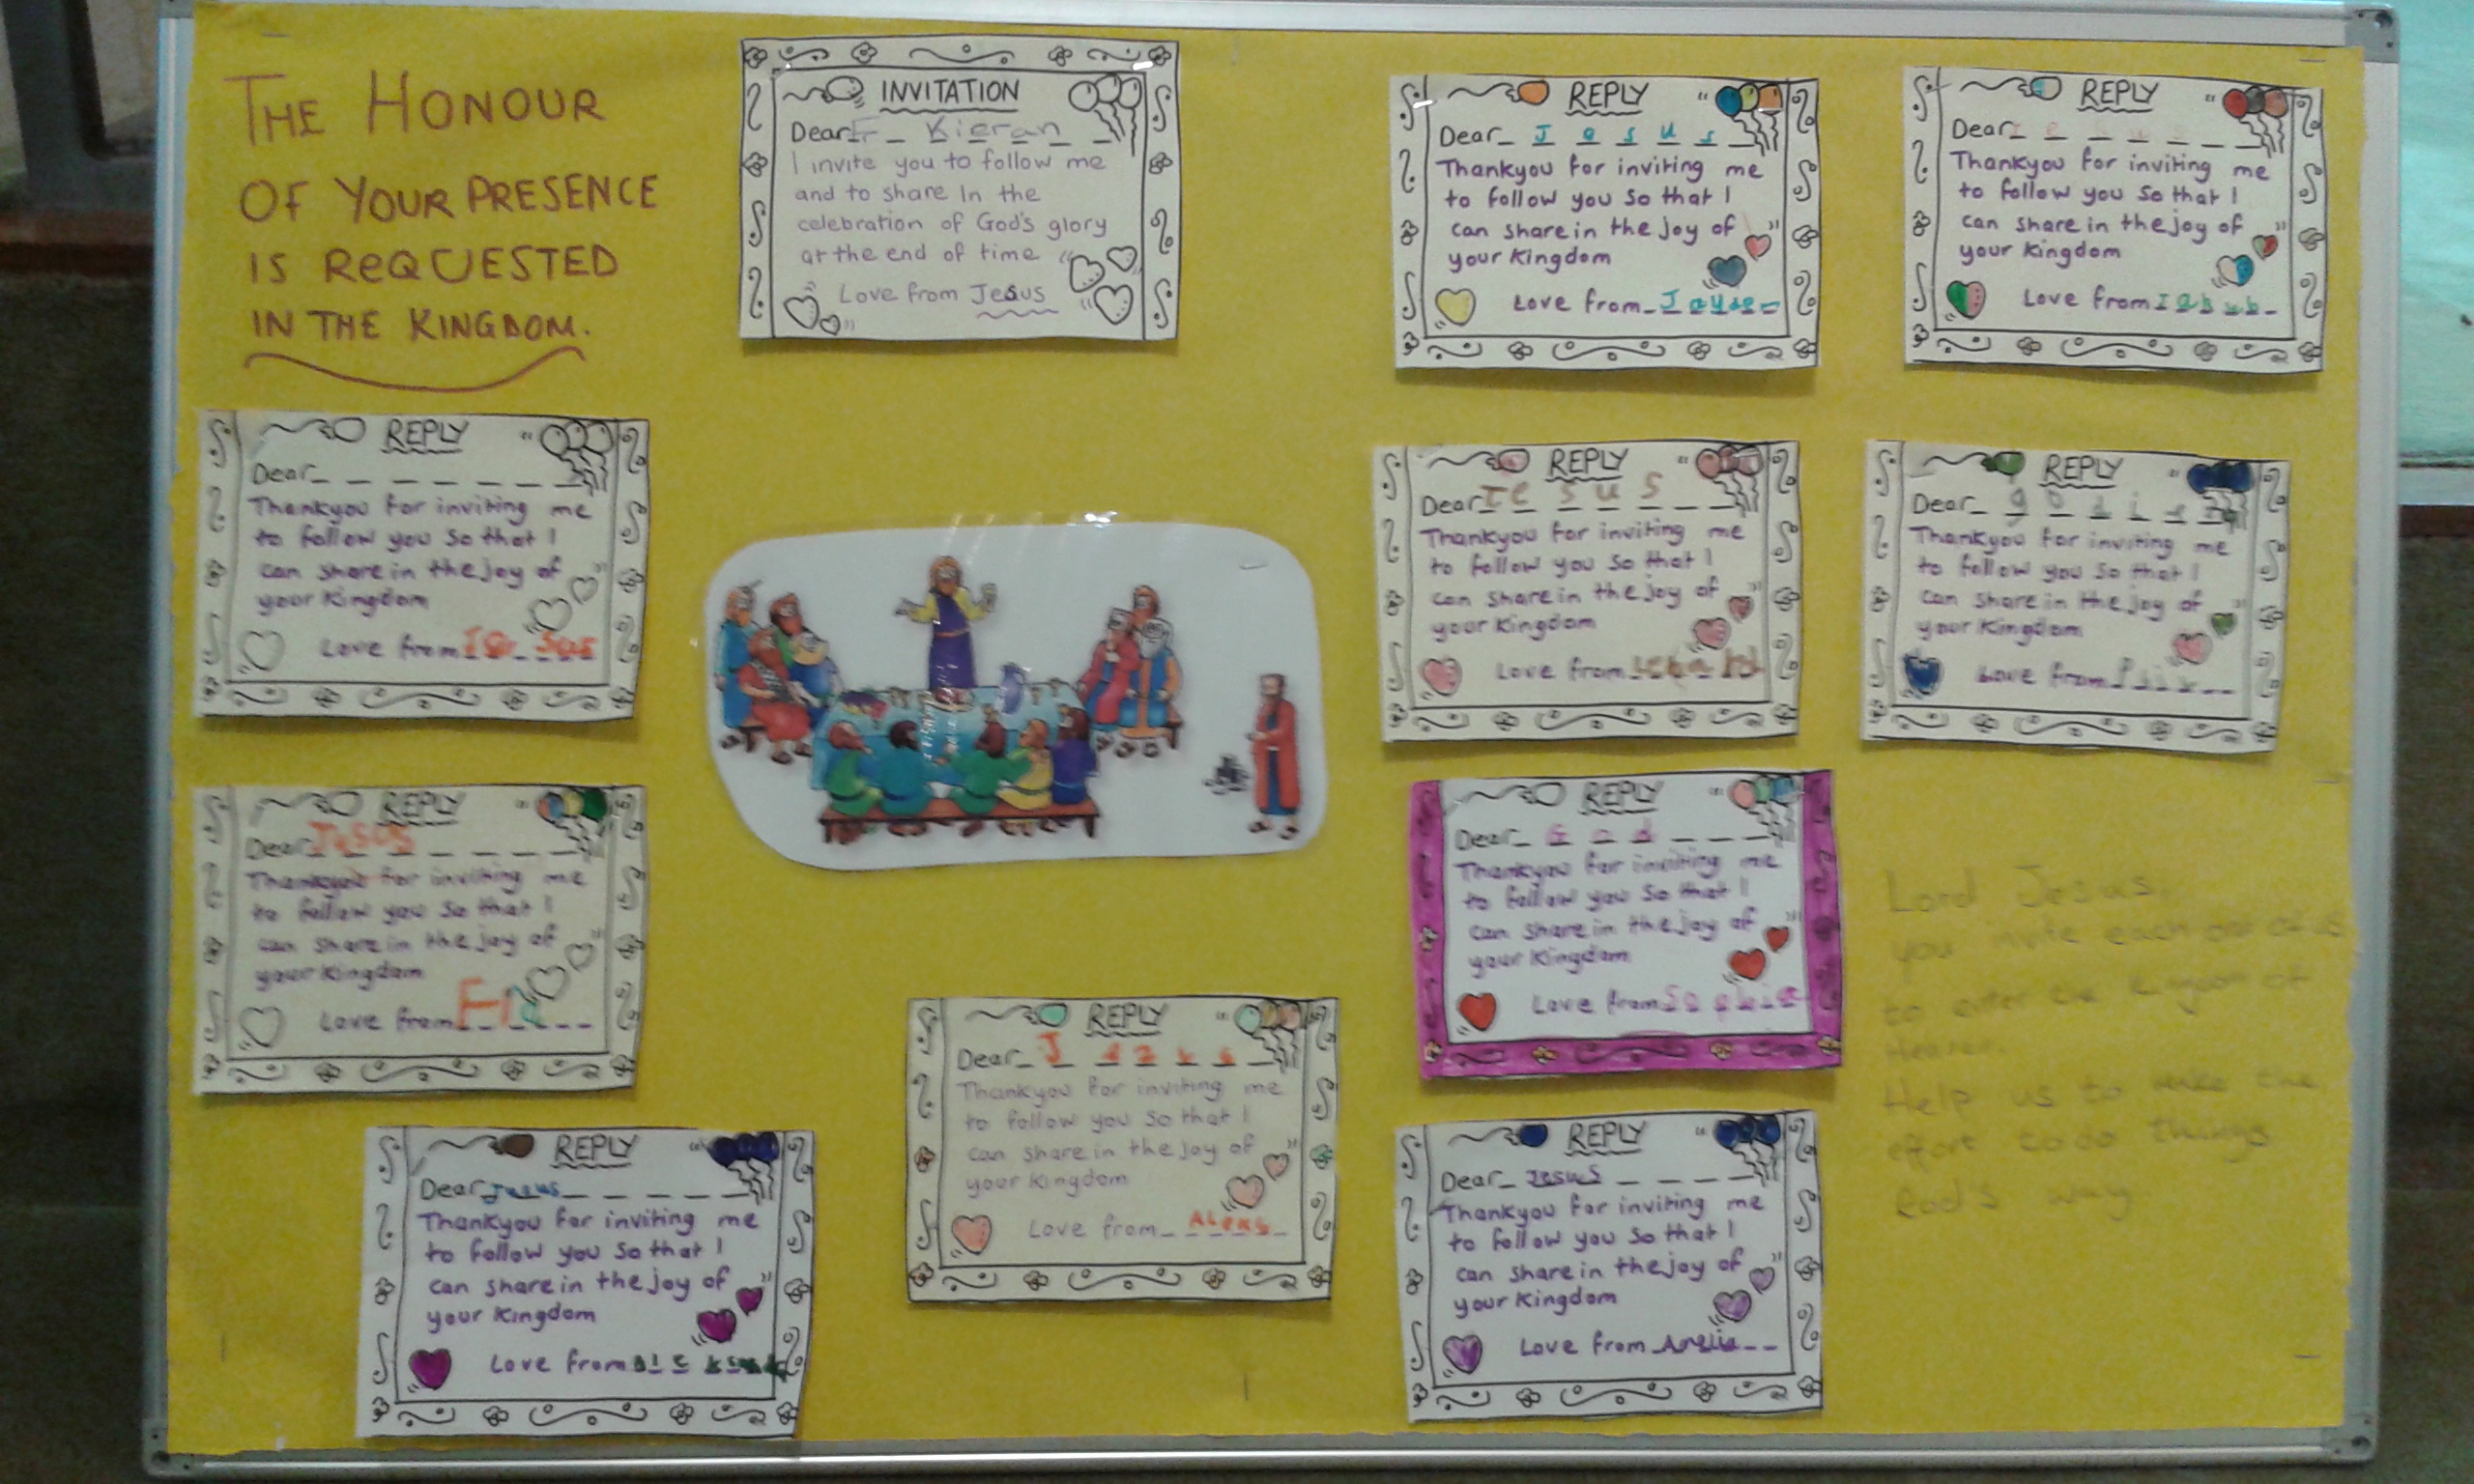 THE HONOUR
OF YOUR PRESENCE
IS ReQUESTED
IN THE KINGDOM.
INVITATION
Dear Fr Kieran
I invite you to follow me
and to share In the
celebration of God's glory
at the end of time
Love from Jesus
REPLY
Dear Jesus
Thankyou for inviting me
to follow you so that I
can share in the joy of
your Kingdom
Love from Jayden
REPLY
Dear
Thankyou for inviting me
to follow you so that I
can share in the joy of
your Kingdom
Love from
REPLY
Dear
Thankyou for inviting me
to follow you so that I
can share in the joy of
your Kingdom
Love from
REPLY
Dear Jesus
Thankyou for inviting me
to follow you so that I
can share in the joy of
your Kingdom
Love from
REPLY
Dear
Thankyou for inviting me
to follow you so that I
can share in the joy of
your Kingdom
Love from
REPLY
Dear Jesus
Thankyou for inviting me
to follow you so that I
can share in the joy of
your Kingdom
Love from
REPLY
Dear God
Thankyou for inviting me
to follow you so that I
can share in the joy of
your Kingdom
Love from
REPLY
Dear Jusus
Thankyou for inviting me
to follow you so that I
can share in the joy of
your Kingdom
Love from
REPLY
Dear
Thankyou for inviting me
to follow you so that I
can share in the joy of
your Kingdom
Love from ALeks
REPLY
Dear Jesus
Thankyou for inviting me
to follow you so that I
can share in the joy of
your Kingdom
Love from Amelia
Lord Jesus,
you invite each one of us
to enter the Kingdom of
Heaven.
Help us to make the
effort to do things
God's way